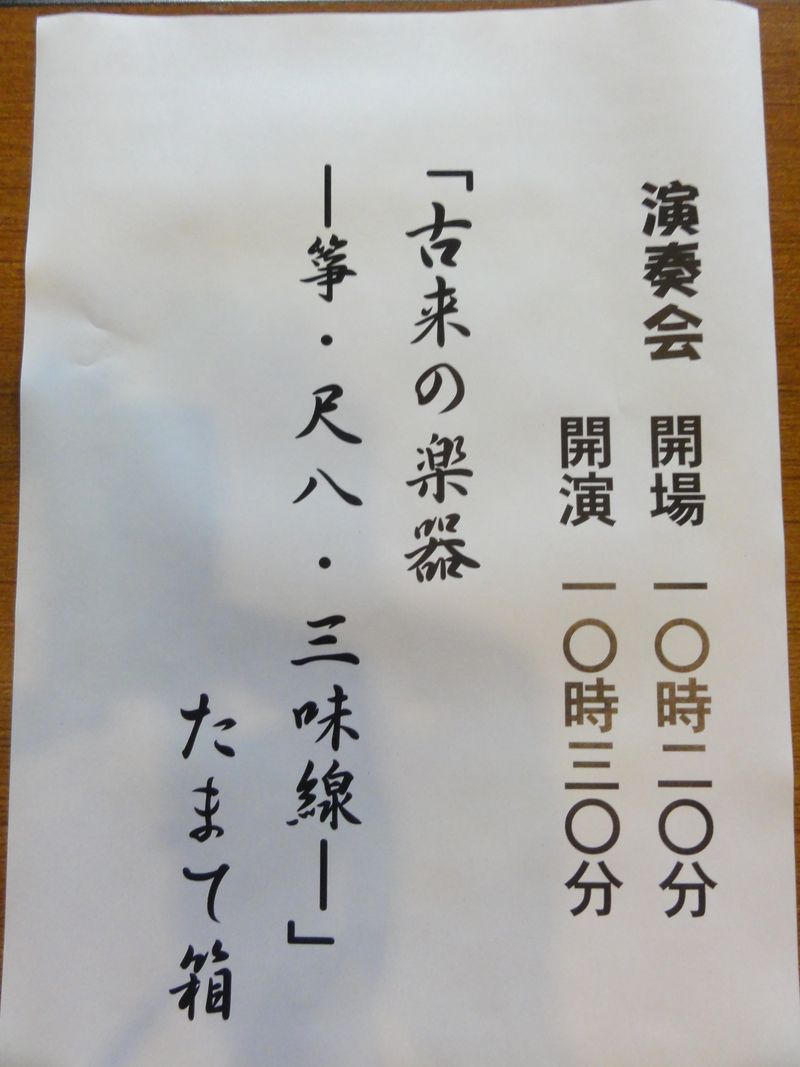 演奏会 開場 一〇時二〇分
開演 一〇時三〇分
「古来の楽器
―箏・尺八・三味線―」
たまて箱